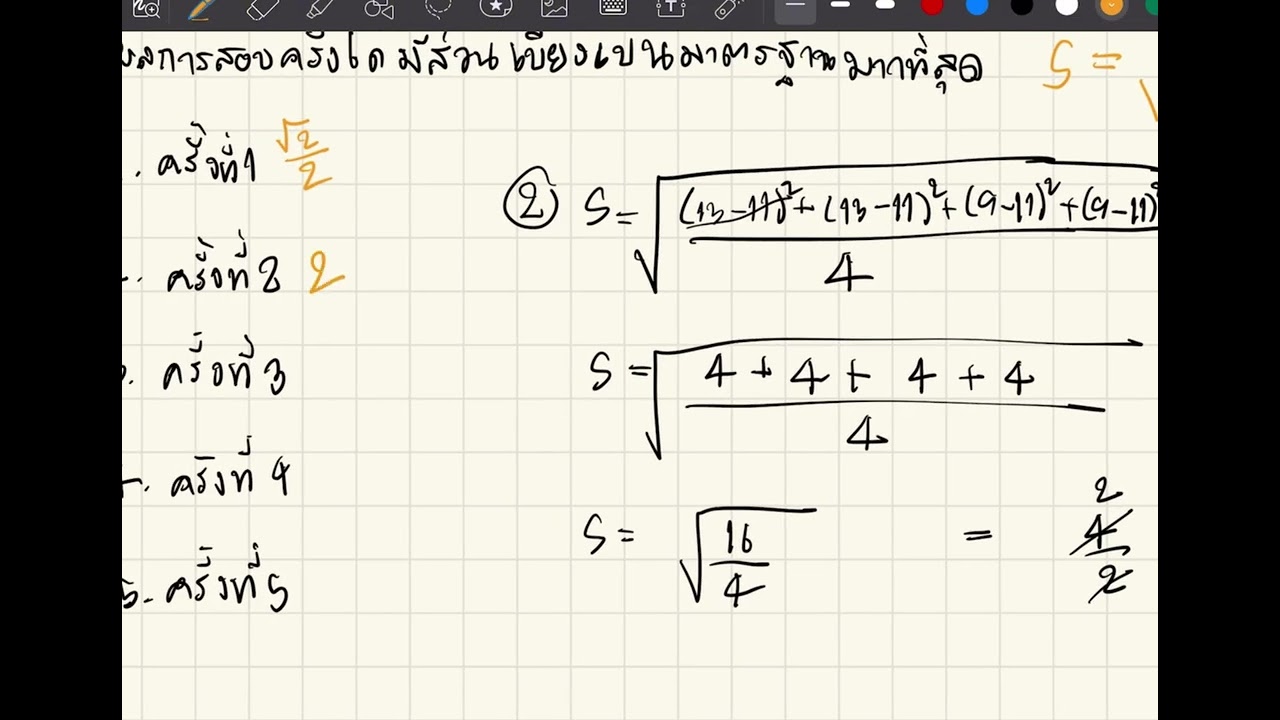 ผลการสอบครั้งใด มีส่วนเบี่ยงเบนมาตรฐานมากที่สุด S = √
. ครั้งที่ 1 √2/2
② S = √((13-11)²+(13-11)²+(9-11)²+(9-11)²/4)
. ครั้งที่ 2 2
S = √(4+4+4+4/4)
. ครั้งที่ 3
. ครั้งที่ 4
S = √(16/4) = 4/2 2
5. ครั้งที่ 5